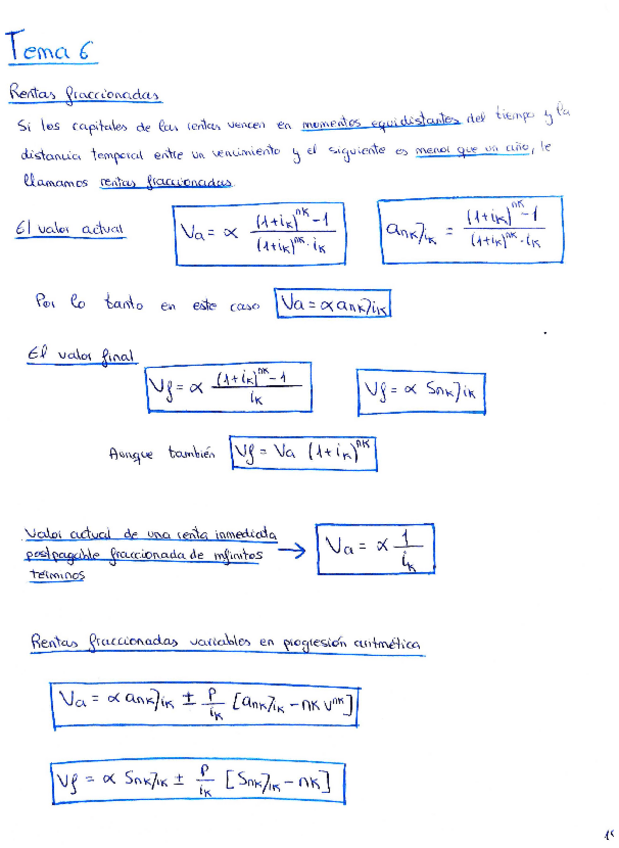 Tema 6
Rentas fraccionadas
Si los capitales de las rentas vencen en momentos equidistantes del tiempo y la
distancia temporal entre un vencimiento y el siguiente es menor que un año, le
llamamos rentas fraccionadas.
El valor actual
Va = α ((1+iK)^nK - 1) / ((1+iK)^nK · iK)
anK⌉iK = ((1+iK)^nK - 1) / ((1+iK)^nK · iK)
Por lo tanto en este caso Va = α anK⌉iK
El valor final
Vf = α ((1+iK)^nK - 1) / iK
Vf = α SnK⌉iK
Aunque también Vf = Va (1+iK)^nK
Valor actual de una renta inmediata
postpagable fraccionada de infinitos
términos
→ Va = α 1/iK
Rentas fraccionadas variables en progresión aritmética
Va = α anK⌉iK ± P/iK [anK⌉iK - nK V^nK]
Vf = α SnK⌉iK ± P/iK [SnK⌉iK - nK]